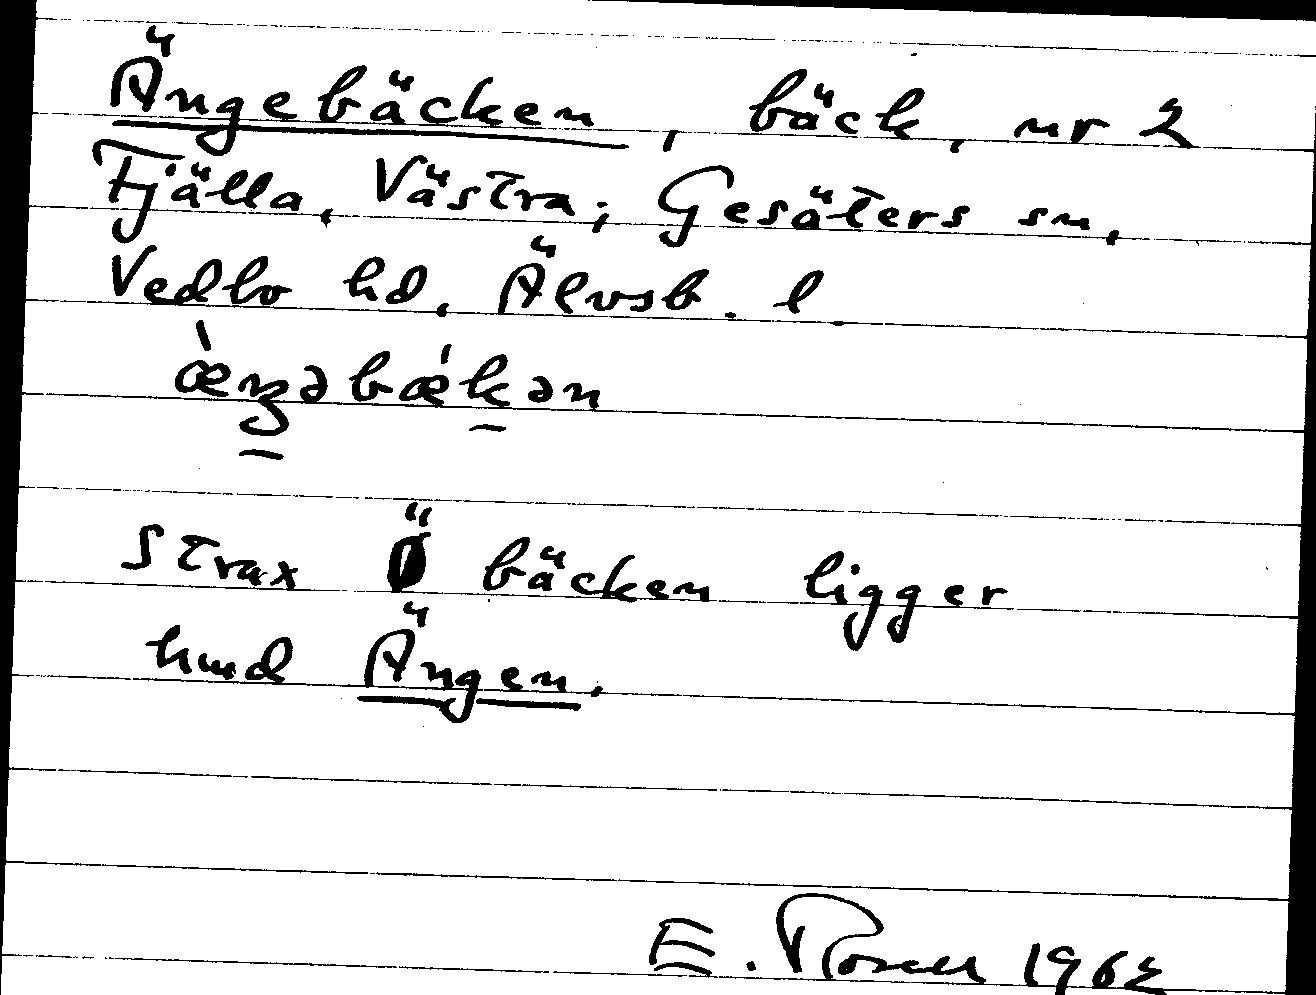 Ängebäcken, bäck, nr 2
Fjälla, Västra; Gesäters sn,
Vedbo hd, Älvsb. l.
æ̀ŋəbǽkən
Strax Ö bäcken ligger
hmd Ängen.
E. Rosell 1962